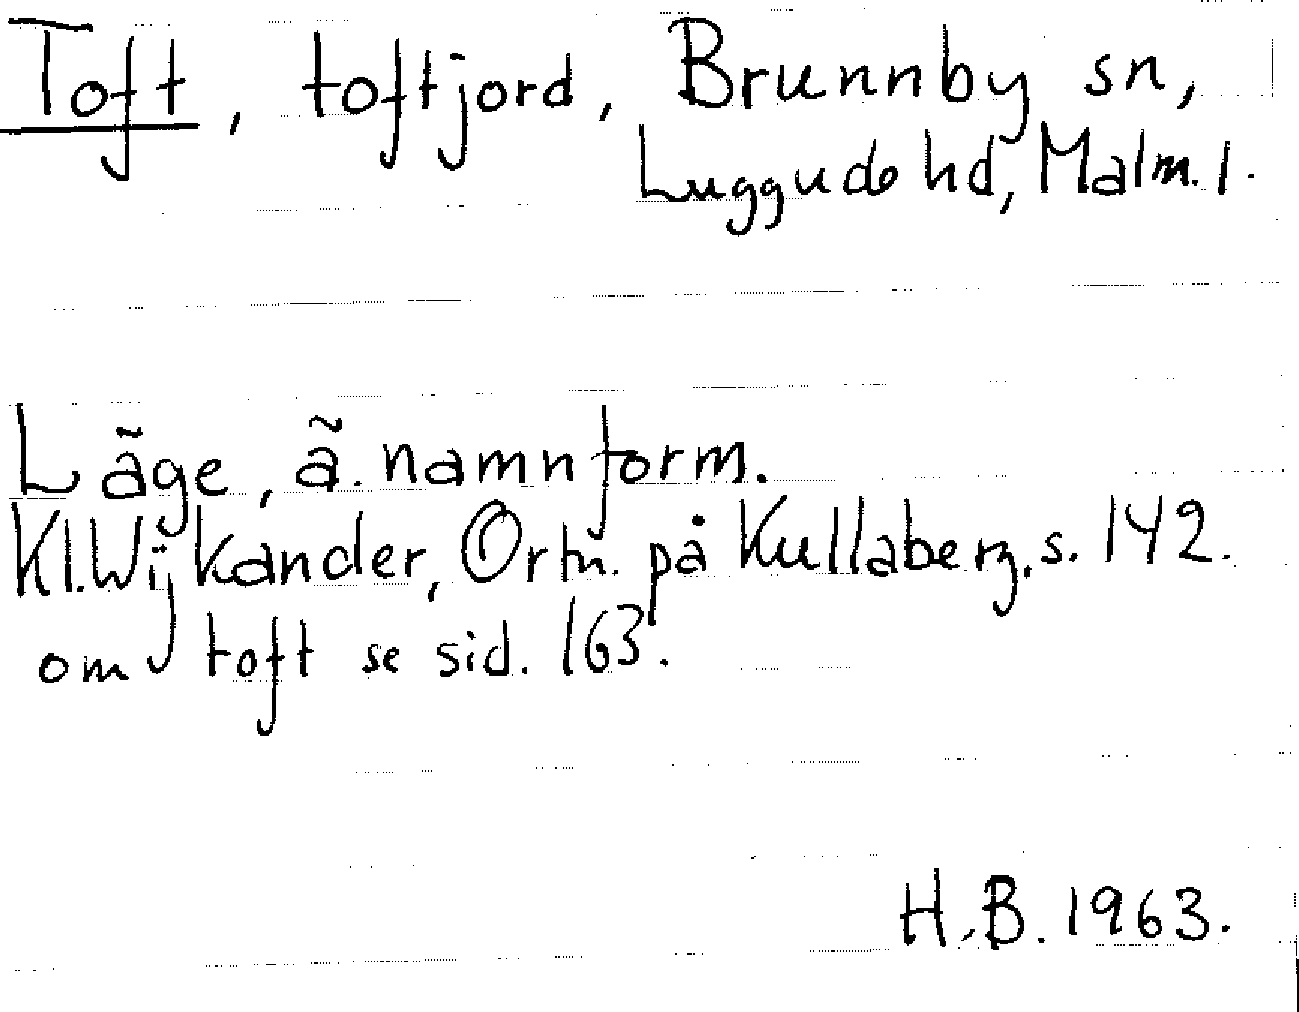 Toft, toftjord, Brunnby sn,
Luggude hd, Malm. l.
Läge, ä. namnform.
Kl. Wijkander, Ortn. på Kullaberg, s. 142.
om toft se sid. 163.
H.B. 1963.